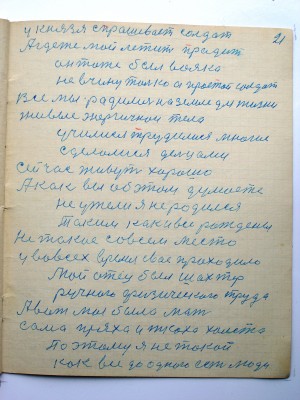 21
у князя спрашевает солдат
А где же мой летит прадит
он тоже был вояка
не в чину только а простой солдат
Все мы радимся на земле для жизни
живые энергичной тела
училися трудилися многие
сделолися делцами
сейчас живут хорошо
А как вы об этом думаете
не ужели я не родился
таким как и все рождены
Не такое совсем место
у во всех время свае проходило
Мой отец был шахтер
ручного физического труда
А вот моя была мать
сама пряха и ткаха холста
по этому я не такой
как все до одного есть люди